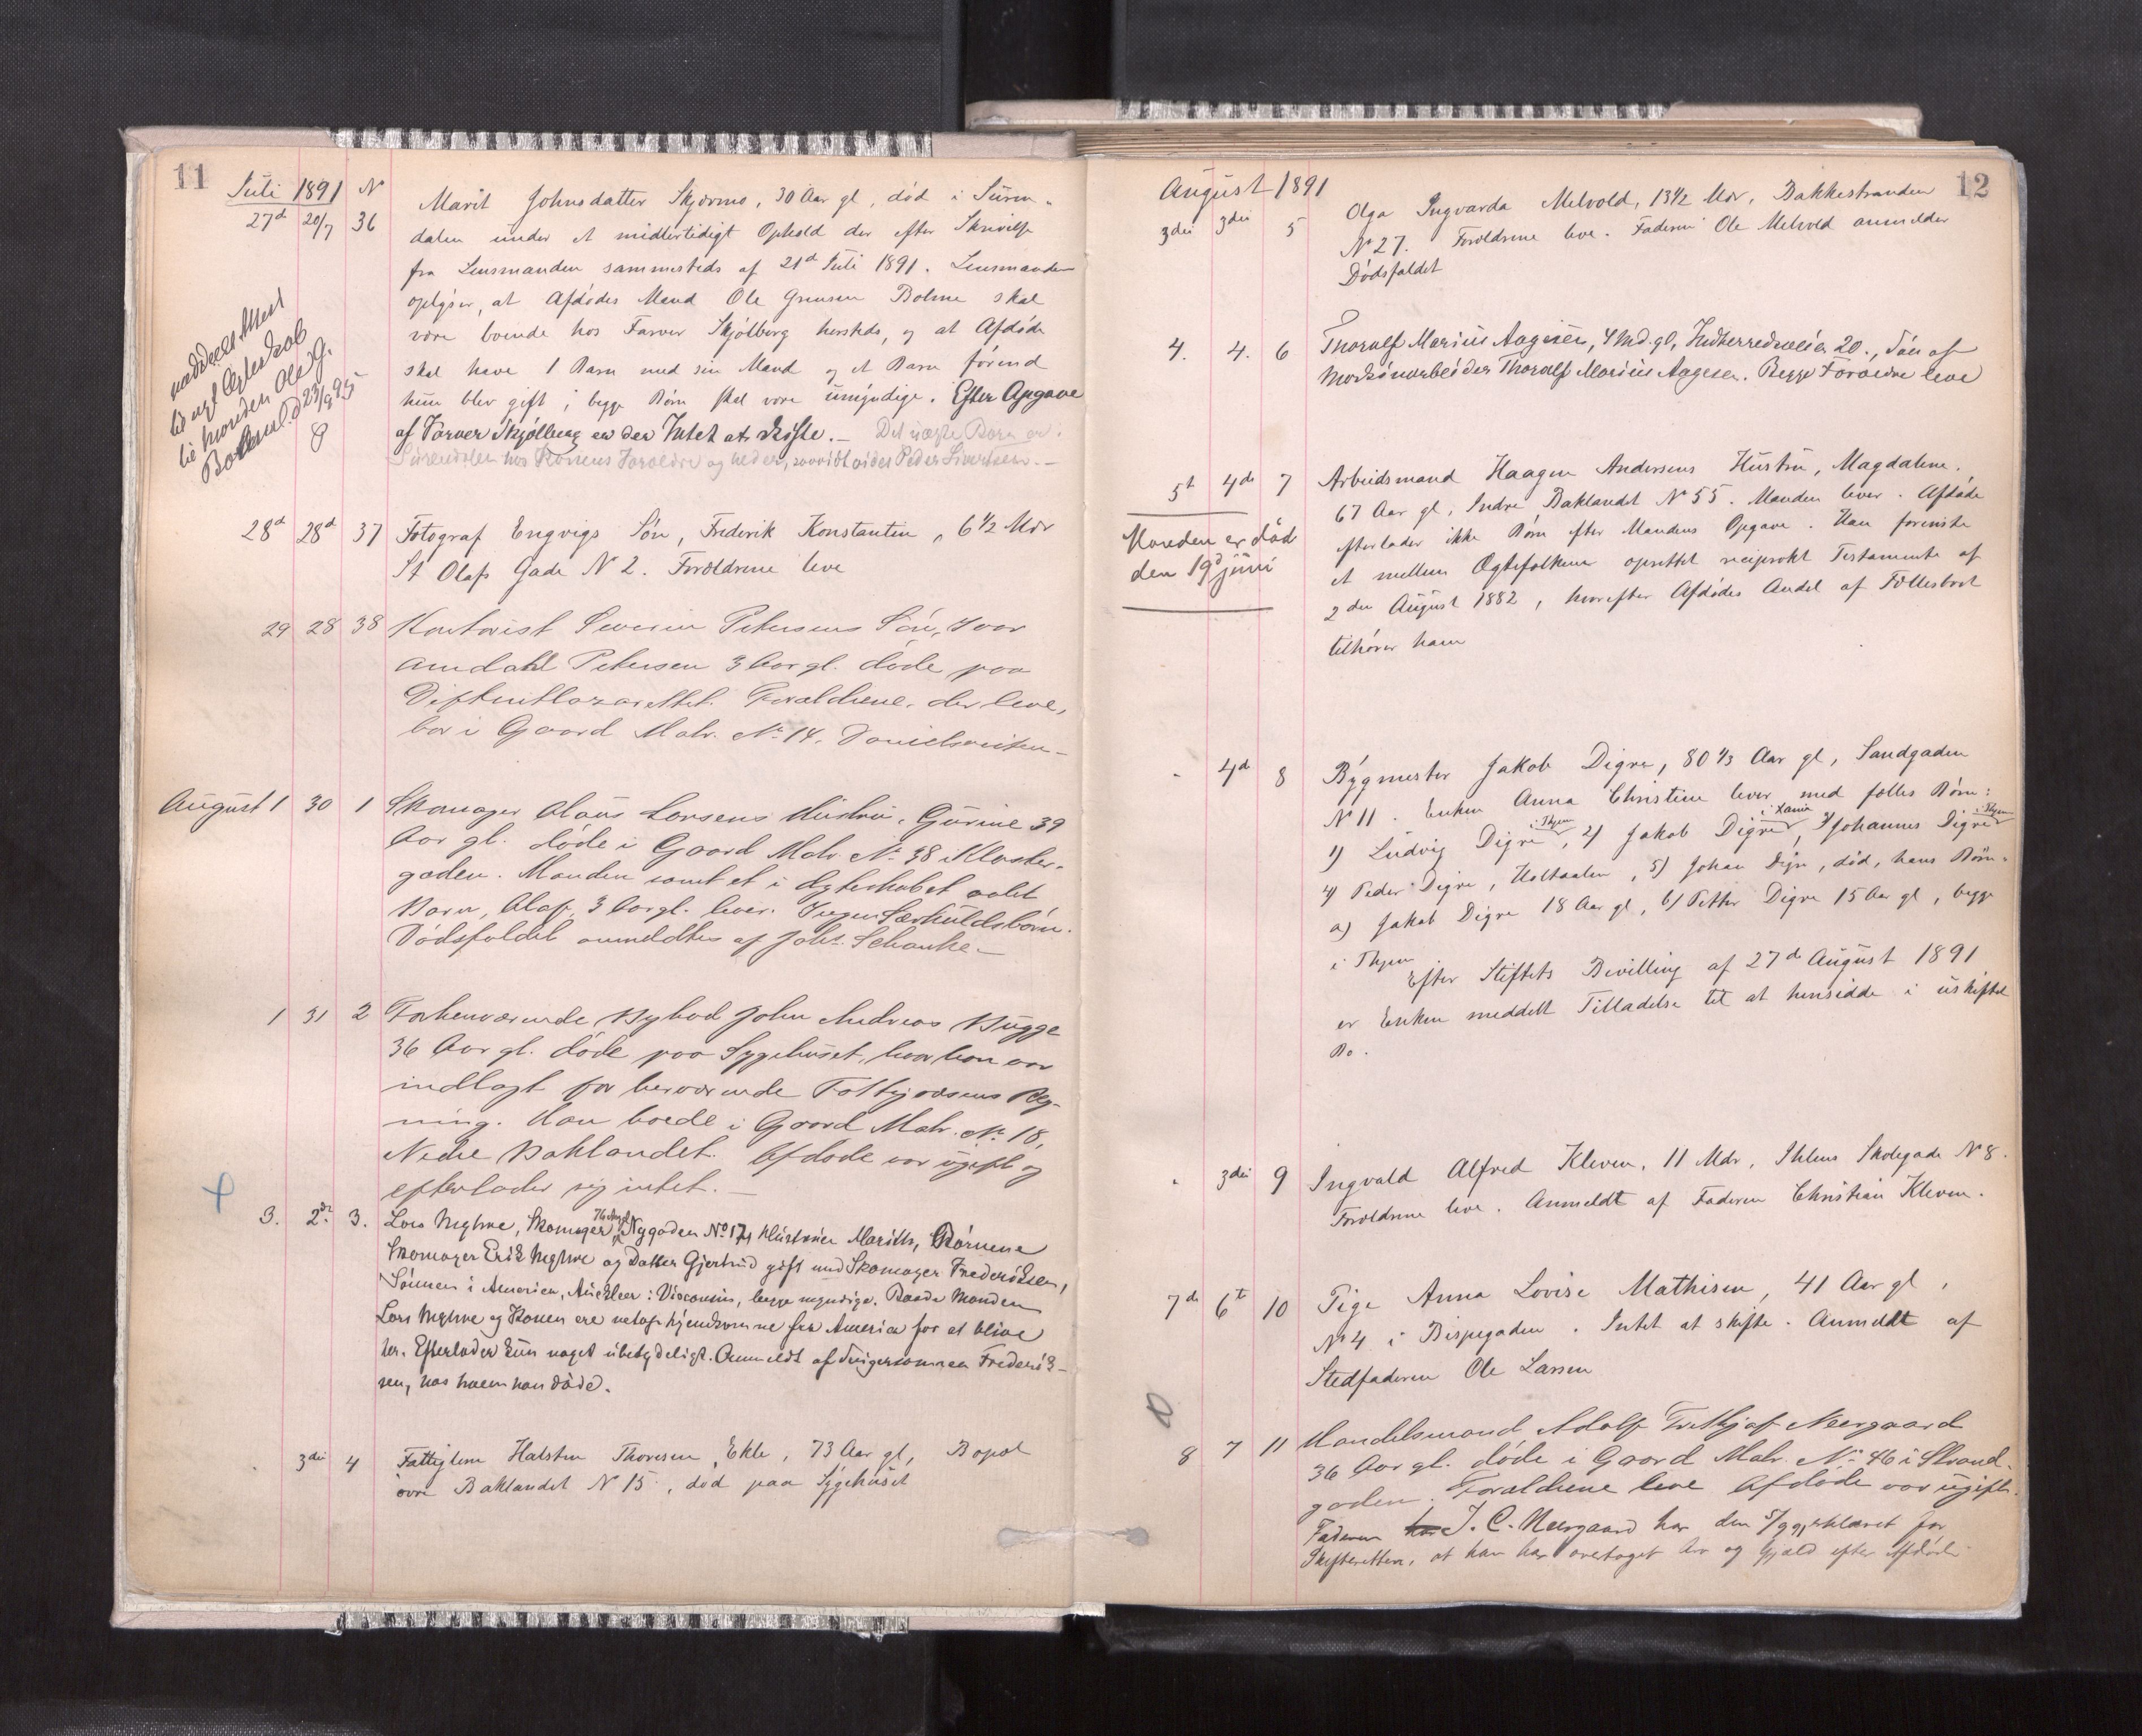 11
Juli 1891 N
27d 20/7 36 Marit Johnsdatter Skjermo, 30 Aar gl, død i Suren-
dalen under et midlertidigt Ophold der efter Skrivelse
fra Lensmanden sammesteds af 21d Juli 1891. Lensmanden
oplyser, at Afdødes Mand Ole Grensen Bolme skal
være boende hos Farver Skjølberg hersteds, og at Afdøde
skal have 1 Barn med sin Mand og et Barn førend
hun blev gift; begge Børn skal være umyndige. Efter Opgave
af Farver Skjølberg er der Intet at skifte. - Det uægte Barn er i
Surendalen hos Konens Forældre og heder, saavidt vides Peder Sivertsen. -
meddeelt Attest
til nyt Ægteskab
til manden Ole G.
Bolme d. 23/9 95
28d 28d 37 Fotograf Engvigs Søn, Frederik Konstantin, 6 1/2 Mdr
St Olafs Gade N 2. Forældrene leve
29 28 38 Kontorist Severin Petersens Søn, Ivar
Amdahl Petersen 3 Aar gl. døde paa
Difteritlazarettet. Forældrene, der leve,
bor i Gaard Matr. No 14, Danielsveiten -
August 1 30 1 Skomager Olaus Larsens Hustru, Gurine 39
Aar gl. døde i Gaard Matr. No 38 i Kloster-
gaden. Manden samt et i Ægteskabet avlet
Barn, Olaf, 3 Aar gl. lever. Ingen Særkuldsbørn.
Dødsfaldet anmeldtes af Johs. Schanke -
1 31 2 Forhenværende Bybud John Andreas Bugge
36 Aar gl. døde paa Sygehuset, hvor han var
indlagt for herværende Fattigvæsens Reg-
ning. Han boede i Gaard Matr. No 18,
Nedre Baklandet. Afdøde var ugift og
efterlader sig intet. -
3. 2den 3. Lars Myhre, Skomager 76 Aar gl Nygaden No 17, Hustruen Marith, Børnene
Skomager Erik Myhre og Datter Gjertrud gift med Skomager Frederiksen,
Sønnen i America, Visconsin, begge myndige. Baade Manden
Lars Myhre og Konen ere netop hjemkomne fra America for at blive
her. Efterlader kun noget ubetydeligt. Anmeldt af Svigersønnen Frederik-
sen, hos hvem han døde.
3die 4 Fattiglem Halsten Thoresen Ekle, 73 Aar gl, Bopæl
øvre Baklandet N 15, død paa Sygehuset
12
August 1891
3die 3die 5 Olga Ingvarda Melvold, 13 1/2 Mdr, Bakkestranden
N 27. Forældrene leve. Faderen Ole Melvold anmelder
Dødsfaldet
4. 4. 6 Thoralf Marius Aagesen, 4 Md. gl, Indherredsveien 20., Søn af
Maskinarbeider Thoralf Marius Aagesen. Begge Forældre leve
5t 4de 7 Arbeidsmand Haagen Andersens Hustru, Magdalene,
67 Aar gl, Indre Baklandet N 55. Manden lever. Afdøde
efterlader ikke Børn efter Mandens Opgave. Han foreviste
et mellem Ægtefolkene oprettet reciprokt Testamente af
2den August 1882, hvorefter Afdødes Andel af Fællesboet
tilhører ham
Manden er død
den 19d juni
- 4d 8 Bygmester Jakob Digre, 80 1/3 Aar gl, Sandgaden
N 11. Enken Anna Christine lever med fælles Børn:
1) Ludvig Digre i Thjem, 2) Jakob Digre i Xania, 3) Johannes Digre i Thjem
4) Peder Digre, Holtaalen, 5) Johan Digre, død, hans Børn:
a) Jakob Digre 18 Aar gl, b) Petter Digre 15 Aar gl, begge
i Thjem
Efter Stiftets Bevilling af 27de August 1891
er Enken meddelt Tilladelse til at hensidde i uskiftet
Bo.
3die 9 Ingvald Alfred Kleven, 11 Mdr, Ihlens Skolegade N 8.
Forældrene leve. Anmeldt af Faderen Christian Kleven.
7de 6t 10 Pige Anna Lovise Mathisen, 41 Aar gl,
N 4 i Bispegaden. Intet at skifte. Anmeldt af
Stedfaderen Ole Larsen
8 7 11 Handelsmand Adolf Frithjof Neergaard
36 Aar gl. døde i Gaard Matr. No 46 i Strand-
gaden. Forældrene leve Afdøde var ugift.
Faderen J. C. Neergaard har den erklæret for
Skifteretten, at han har overtaget Arv og Gjæld efter Afdøde